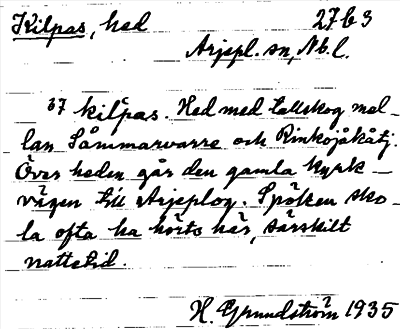 Kilpas, hed 27b3
Arjepl. sn, Nb. l.
37 kil̄pas. Hed med tallskog mel-
lan Såmmarvarre och Rinkojåkåtj.
Över heden går den gamla kyrk-
vägen till Arjeplog. Spöken sko-
la ofta ha hörts här, särskilt
nattetid.
H. Grundström 1935